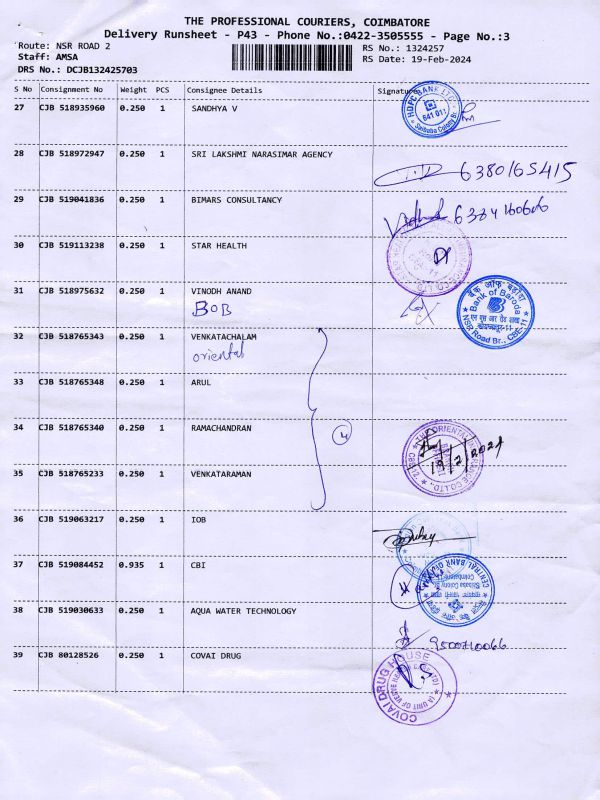 THE PROFESSIONAL COURIERS, COIMBATORE
Delivery Runsheet - P43 - Phone No.:0422-3505555 - Page No.:3
Route: NSR ROAD 2
RS No.: 1324257
Staff: AMSA
RS Date: 19-Feb-2024
DRS No.: DCJB132425703
S No Consignment No Weight PCS Consignee Details Signature
27 CJB 518935960 0.250 1 SANDHYA V
HDFC BANK LTD. 641 011 Saibaba Colony Br.
28 CJB 518972947 0.250 1 SRI LAKSHMI NARASIMAR AGENCY
6380165415
29 CJB 519041836 0.250 1 BIMARS CONSULTANCY
30 CJB 519113238 0.250 1 STAR HEALTH
31 CJB 518975632 0.250 1 VINODH ANAND
BOB
बैंक ऑफ़ बड़ौदा Bank of Baroda
NSR Road Br., CBE-11
32 CJB 518765343 0.250 1 VENKATACHALAM
oriental
33 CJB 518765348 0.250 1 ARUL
34 CJB 518765340 0.250 1 RAMACHANDRAN
4
THE ORIENTAL INSURANCE CO.LTD.
19/2/2024
35 CJB 518765233 0.250 1 VENKATARAMAN
36 CJB 519063217 0.250 1 IOB
37 CJB 519084452 0.935 1 CBI
CENTRAL BANK OF
38 CJB 519030633 0.250 1 AQUA WATER TECHNOLOGY
9500710066
39 CJB 80128526 0.250 1 COVAI DRUG
COVAI DRUG HOUSE